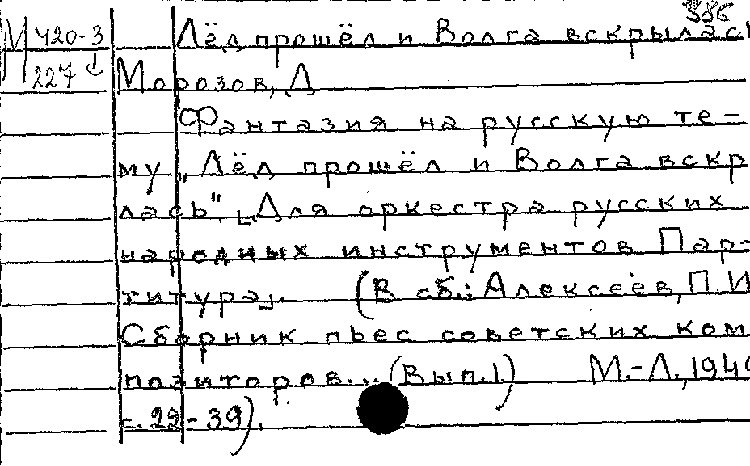 386
М 420-3 Лёд прошёл и Волга вскрылась
227 Морозов, Д
Фантазия на русскую те-
му „Лёд прошёл и Волга вскр
лась". [Для оркестра русских
народных инструментов Пар-
титура]. (В сб.: Алексеев, П.И
Сборник пьес советских ком
позиторов... (Вып.1) М.-Л., 194
с. 22-39).